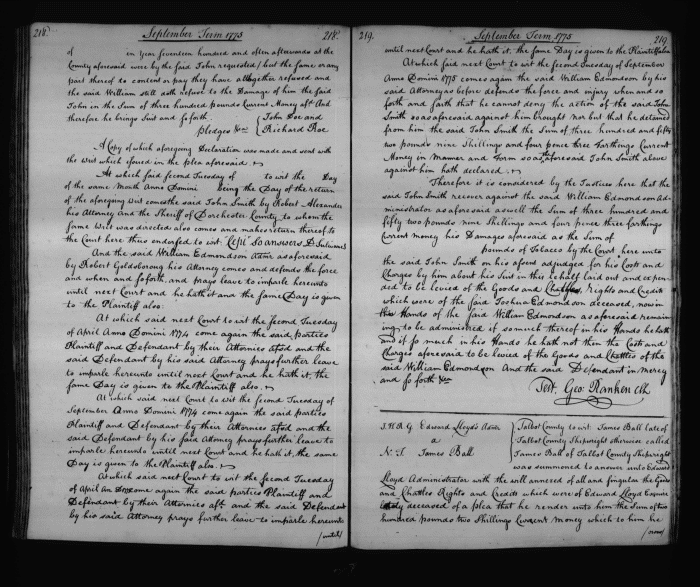 218. September Term 1775 218.
of in Year seventeen hundred and often afterwards at the
County aforesaid were by the said John requested/ but the same or any
part thereof to content or pay they have altogether refused and
the said William still doth refuse to the Damage of him the said
John in the Sum of three hundred pounds Current Money aft. And
therefore he brings Suit and so forth.
pledges &ca {John Doe and
Richard Roe
A Copy of which aforegoing Declaration was made and sent with
the Writ which issued in the plea aforesaid.
At which said second Tuesday of to wit the Day
of the same Month Anno Domini being the Day of the return
of the aforegoing Writ comes the said John Smith by Robert Alexander
his Attorney and the Sheriff of Dorchester County to whom the
same Writ was directed also comes and makes return thereof to
the Court here thus endorsed to wit: Cepi So answers D. Sulivane S
And the said William Edmondson Adm.r as aforesaid
by Robert Goldsborough his Attorney comes and defends the force
and when and soforth, and prays leave to imparle hereunto
until next Court and he hath it and the same Day is given
to the Plaintiff also:
At which said next Court to wit the second Tuesday
of April Anno Domini 1774 come again the said parties
Plaintiff and Defendant by their Attornies afsd and the
said Defendant by his said Attorney prays further leave
to imparle hereunto until next Court and he hath it, the
same Day is given to the Plaintiff also.
At which said next Court to wit the second Tuesday of
September Anno Domini 1774 come again the said parties
Plaintiff and Defendant by their Attornies afsd and the said
Defendant by his said Attorney prays further leave to
imparle hereunto until next Court and he hath it, the same
Day is given to the Plaintiff also.
At which said next Court to wit the second Tuesday
of April Ann Dom come again the said parties Plaintiff and
Defendant by their Attornies aft and the said Defendant
by his said Attorney prays further leave to imparle hereunto
/until/
219. September Term 1775 219
until next Court and he hath it, the same Day is given to the Plaintiff also
At which said next Court to wit the second Tuesday of September
Anno Domini 1775 comes again the said William Edmondson by his
said Attorney as before defends the force and injury when and so
forth and saith that he cannot deny the action of the said John
Smith so as aforesaid against him brought nor but that he detains
from him the said John Smith the Sum of three hundred and fifty
two pounds nine Shillings and four pence three farthings Current
Money in Manner and Form so as the aforesaid John Smith above
against him hath declared.
Therefore it is considered by the Justices here that the
said John Smith recover against the said William Edmondson Ad-
ministrator as aforesaid as well the Sum of three hundred and
fifty two pounds nine Shillings and four pence three farthings
Current money his Damages aforesaid as the Sum of
pounds of Tobacco by the Court here unto
the said John Smith on his assent adjudged for his Cost and
Charges by him about his Suit in this behalf laid out and expen-
ded to be levied of the Goods and Chattles, Rights and Credits
which were of the said Joshua Edmondson deceased, now in
the Hands of the said William Edmondson as aforesaid remain
ing to be administered if so much thereof in his Hands he hath
and if so much in his Hands he hath not then the Cost and
Charges aforesaid to be levied of the Goods and Chattles of the
said William Edmondson And the said Defendant in mercy
and so forth &ca
Test. Geo: Ranken Clk
J.H R.G. Edward Lloyd's Adm.r
a
N. T. James Ball
Talbot County to wit: James Ball late of
Talbot County Shipwright otherwise called
James Ball of Talbot County Shipwright
was summoned to answer unto Edward
Lloyd Administrator with the will annexed of all and singular the Goods
and Chattles Rights and Credits which were of Edward Lloyd Esquire
deceased of a plea that he render unto him the Sum of two
hundred pounds two Shillings Current money which to him he
/owes/